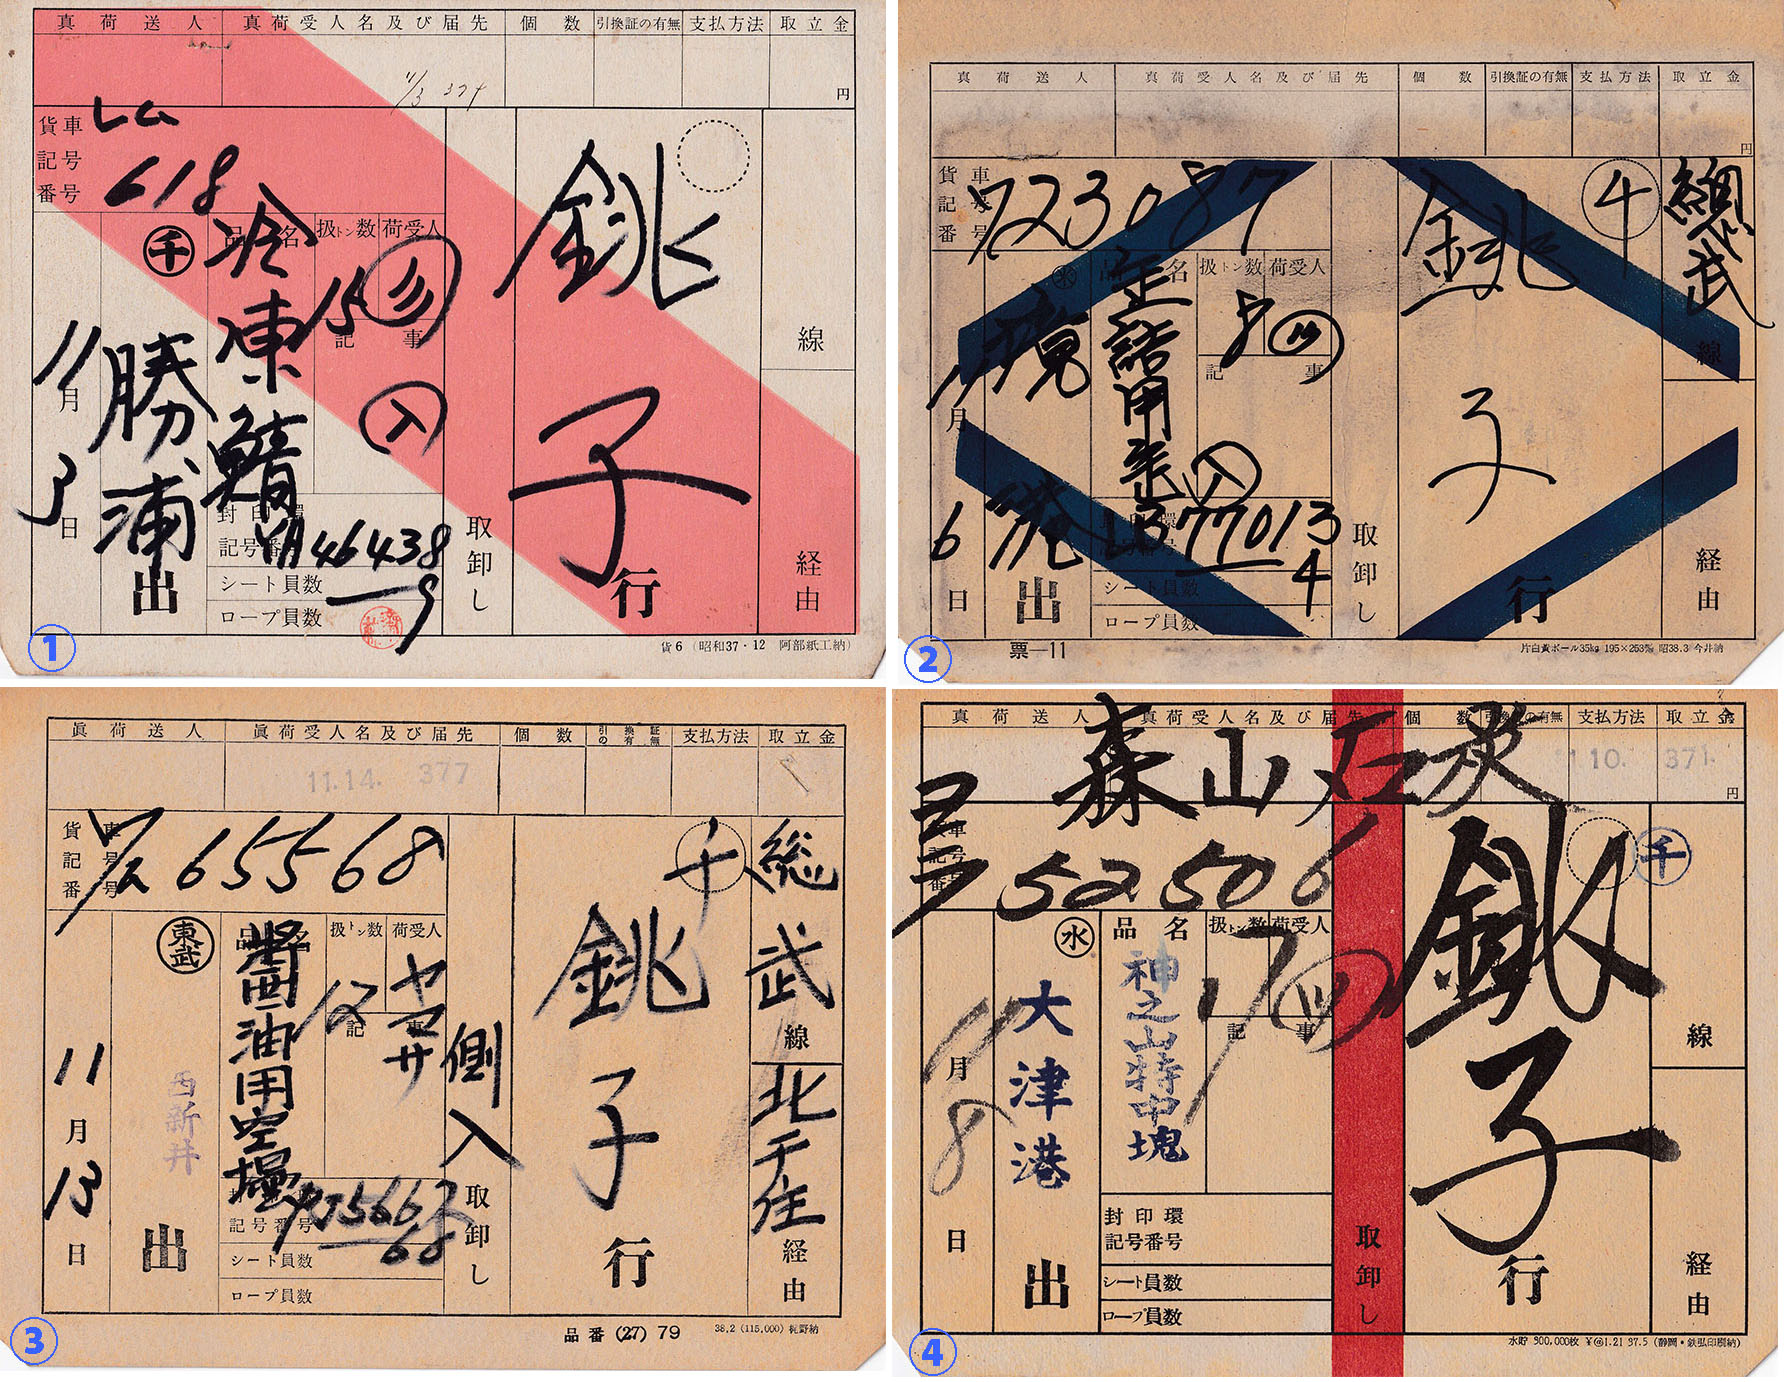 真荷送人 真荷受人名及び届先 個数 引換証の有無 支払方法 取立金
11/3 377
円
貨車記号番号 レム 618
千 勝浦 出
11月3日
品名 冷凍鯖
扱トン数 15
荷受人
記事 入
封印環記号番号 46438
9
シート員数
ロープ員数
取卸し
銚子 行
線
経由
貨6 (昭和37・12 阿部紙工納)
1
真荷送人 真荷受人名及び届先 個数 引換証の有無 支払方法 取立金
円
貨車記号番号 ワ23087
水 境港 出
11月6日
品名 缶詰用
扱トン数
荷受人
記事 入
封印環記号番号 77013
4
シート員数
ロープ員数
取卸し
千
銚子 行
総武 線
経由
票―11
片白黄ボール35kg 195×263% 昭38.3 今井納
2
眞荷送人 眞荷受人名及び届先 個数 引換証の有無 支払方法 取立金
11.14. 377
貨車記号番号 ワム 65568
東武 西新井 出
11月13日
品名 醤油用空壜
扱トン数 12
荷受人 ヤマサ
記事
記号番号
68
シート員数
ロープ員数
側入
取卸し
千
銚子 行
総武 線
北千住 経由
品番 (27) 79
38.2 (115,000) 梶野納
3
真荷送人 真荷受人名及び届先 個数 引換証の有無 支払方法 取立金
森山石炭
1.10. 371.
円
貨車記号番号 ヨラ 52506
水 大津港 出
11月8日
品名 神之山特中塊
扱トン数 17
荷受人
記事
封印環記号番号
シート員数
ロープ員数
取卸し
千
銚子 行
線
経由
水貯 300,000枚 ¥@1.21 37.5 (静岡・鉄弘印刷納)
4